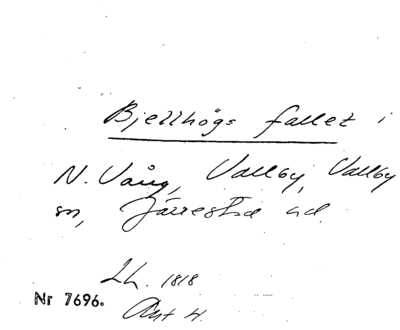 Bjellhögs fallet i
N. Vång, Vallby, Vallby
sn, Järrestad hd.
Lh. 1818
Nr 7696.
Ant 4.